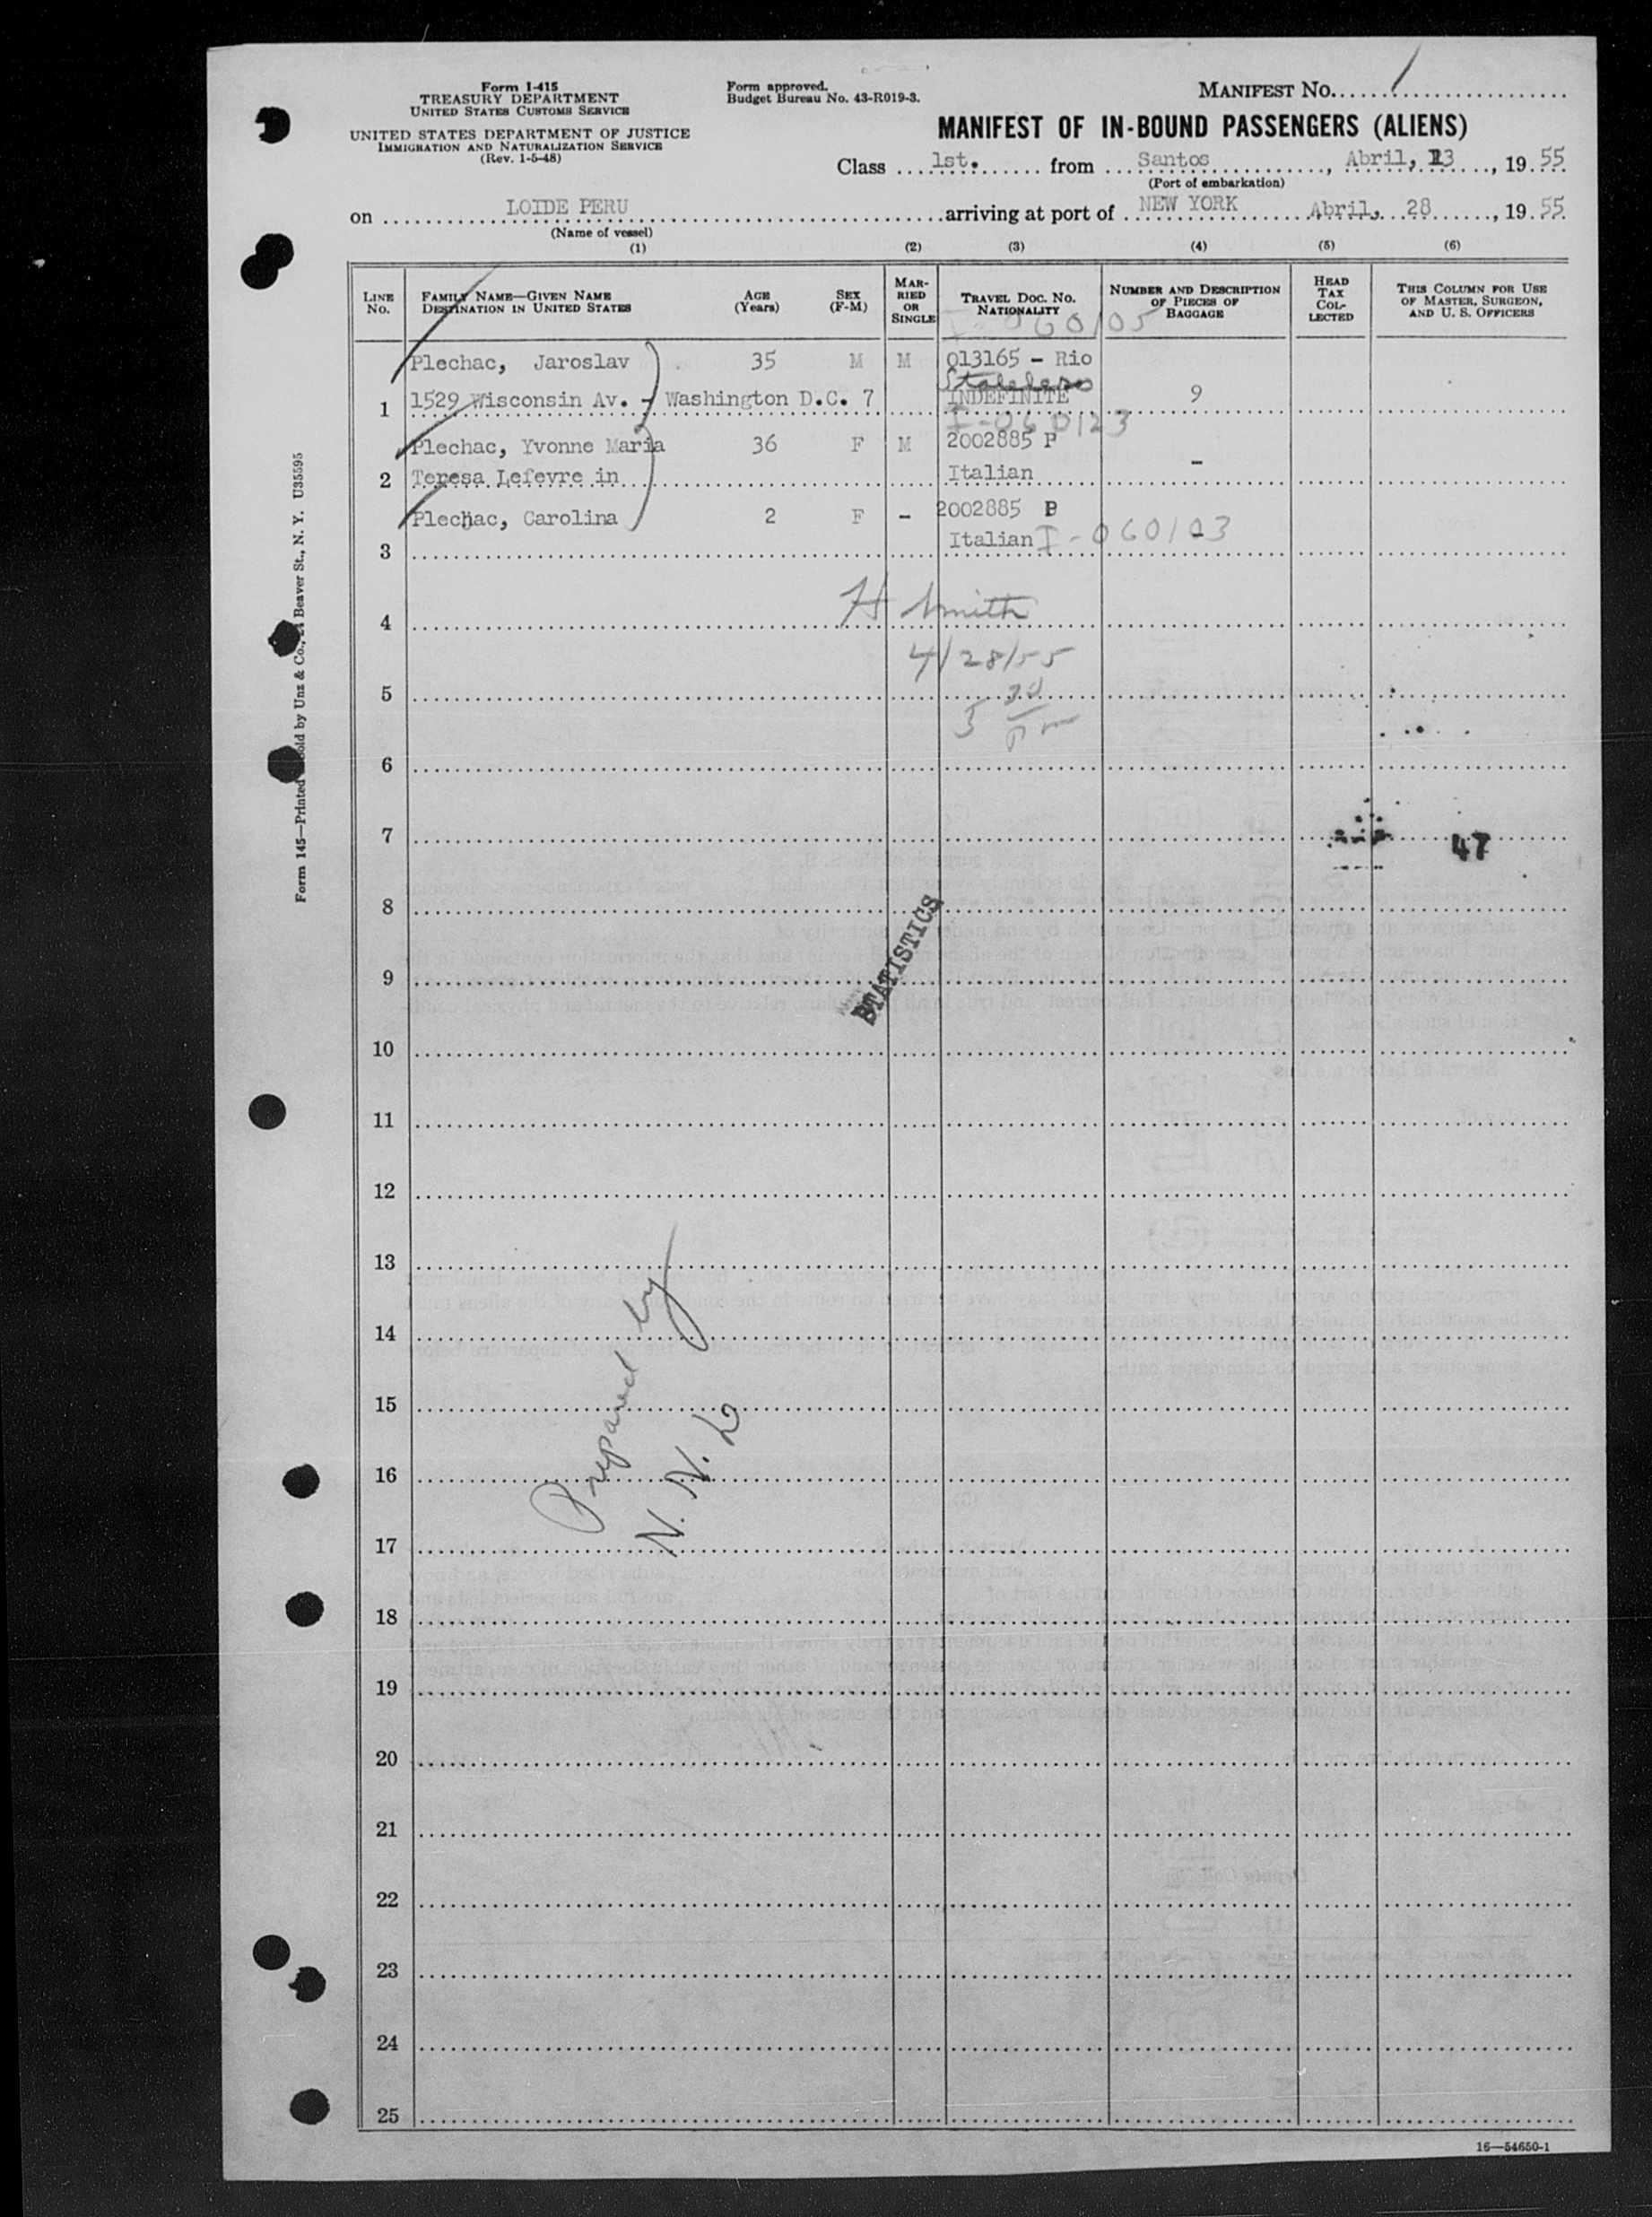 Form I-415
TREASURY DEPARTMENT
UNITED STATES CUSTOMS SERVICE
UNITED STATES DEPARTMENT OF JUSTICE
IMMIGRATION AND NATURALIZATION SERVICE
(Rev. 1-5-48)
Form approved.
Budget Bureau No. 43-R019-3.
MANIFEST No. 1
MANIFEST OF IN-BOUND PASSENGERS (ALIENS)
Class 1st. from Santos, Abril, 13, 19 55
(Port of embarkation)
on LOIDE PERU arriving at port of NEW YORK Abril, 28, 19 55
(Name of vessel)
(1) (2) (3) (4) (5) (6)
LINE No.
FAMILY NAME—GIVEN NAME DESTINATION IN UNITED STATES
AGE (Years)
SEX (F-M)
MARRIED OR SINGLE
TRAVEL DOC. NO. NATIONALITY
NUMBER AND DESCRIPTION OF PIECES OF BAGGAGE
HEAD TAX COLLECTED
THIS COLUMN FOR USE OF MASTER, SURGEON, AND U. S. OFFICERS
I-060105
Plechac, Jaroslav 35 M M 013165 - Rio
Stateless
1 1529 Wisconsin Av. - Washington D.C. 7 INDEFINITE 9
I-060123
Plechac, Yvonne Maria 36 F M 2002885 P
2 Teresa Lefevre in Italian -
Plechac, Carolina 2 F - 2002885 P
3 Italian I-060103 -
4 H Smith
4/28/55
5
5 30 pm
6
7 47
8
STATISTICS
9
10
11
12
13
14
15
16
17
Prepared by
N. N. L
18
19
20
21
22
23
24
25
16—54650-1
Form 145—Printed Sold by Unz & Co., 24 Beaver St., N. Y. U35595